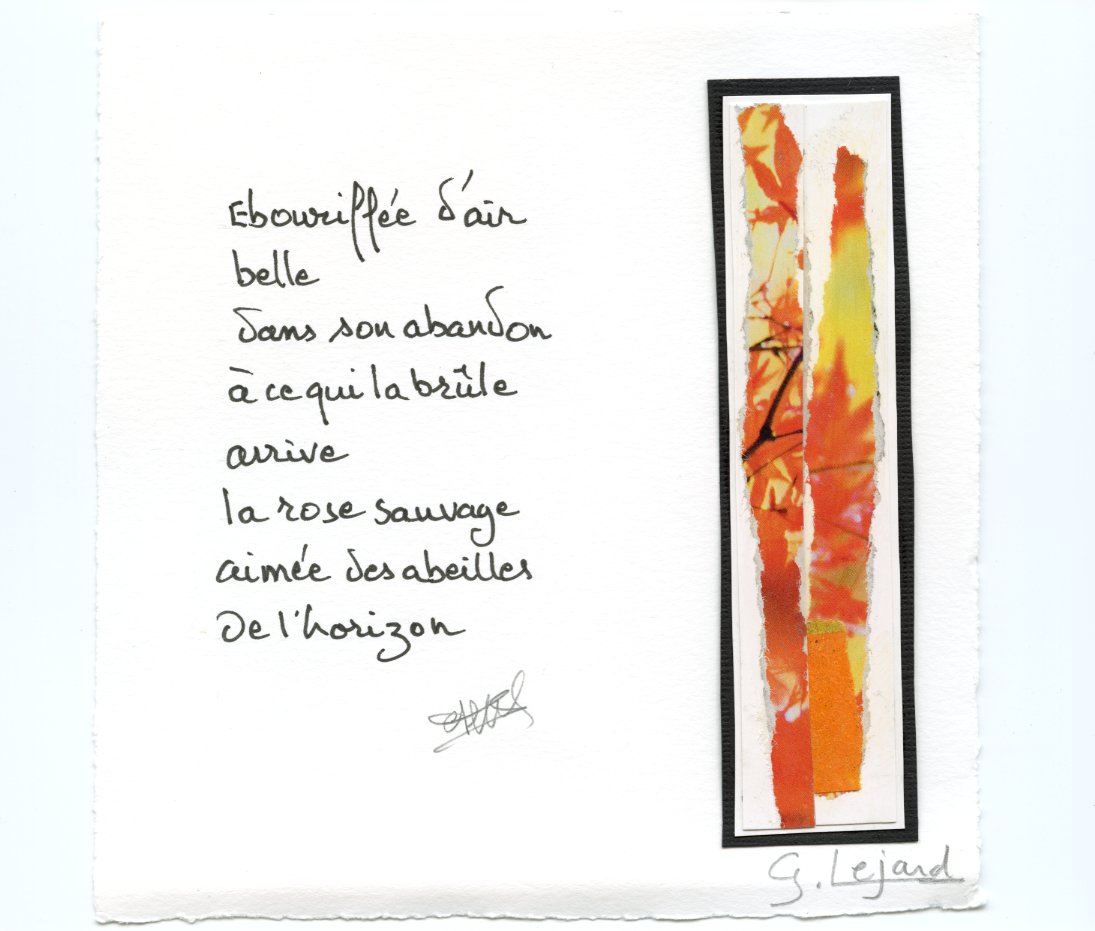 Ebouriffée d'air
belle
dans son abandon
à ce qui la brûle
arrive
la rose sauvage
aimée des abeilles
De l'horizon
G. Lejard